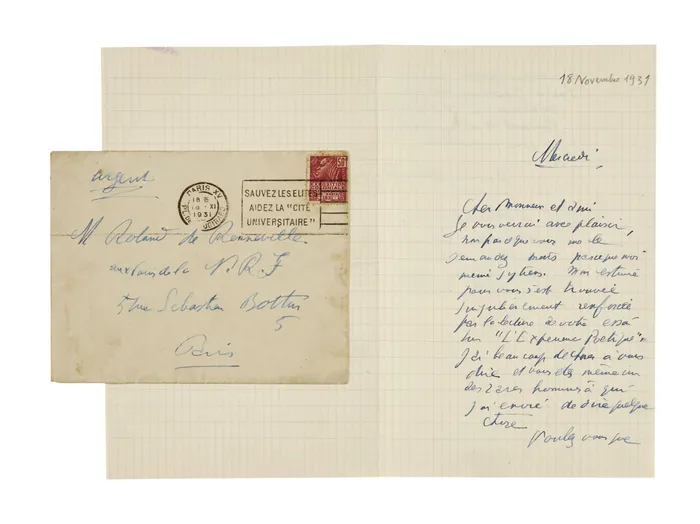 urgent
PARIS XV
18 H
18 XI
1931
SAUVEZ LES ELITES
AIDEZ LA "CITÉ
UNIVERSITAIRE"
M Roland de Renneville
aux soins de la N.R.F
5 rue Sébastien Bottin
5
Paris
18 Novembre 1931
Mercredi,
Cher Monsieur et ami
Je vous verrai avec plaisir,
non parce que vous me le
demandez mais parce que moi
même j'y tiens. Mon estime
pour vous s'est trouvée
singulièrement renforcée
par la lecture de votre essai
sur "L'Expérience Poétique".
J'ai beaucoup de choses à vous
dire et vous êtes même un
des rares hommes à qui
j'ai envie de dire quelque
chose
Voulez vous que